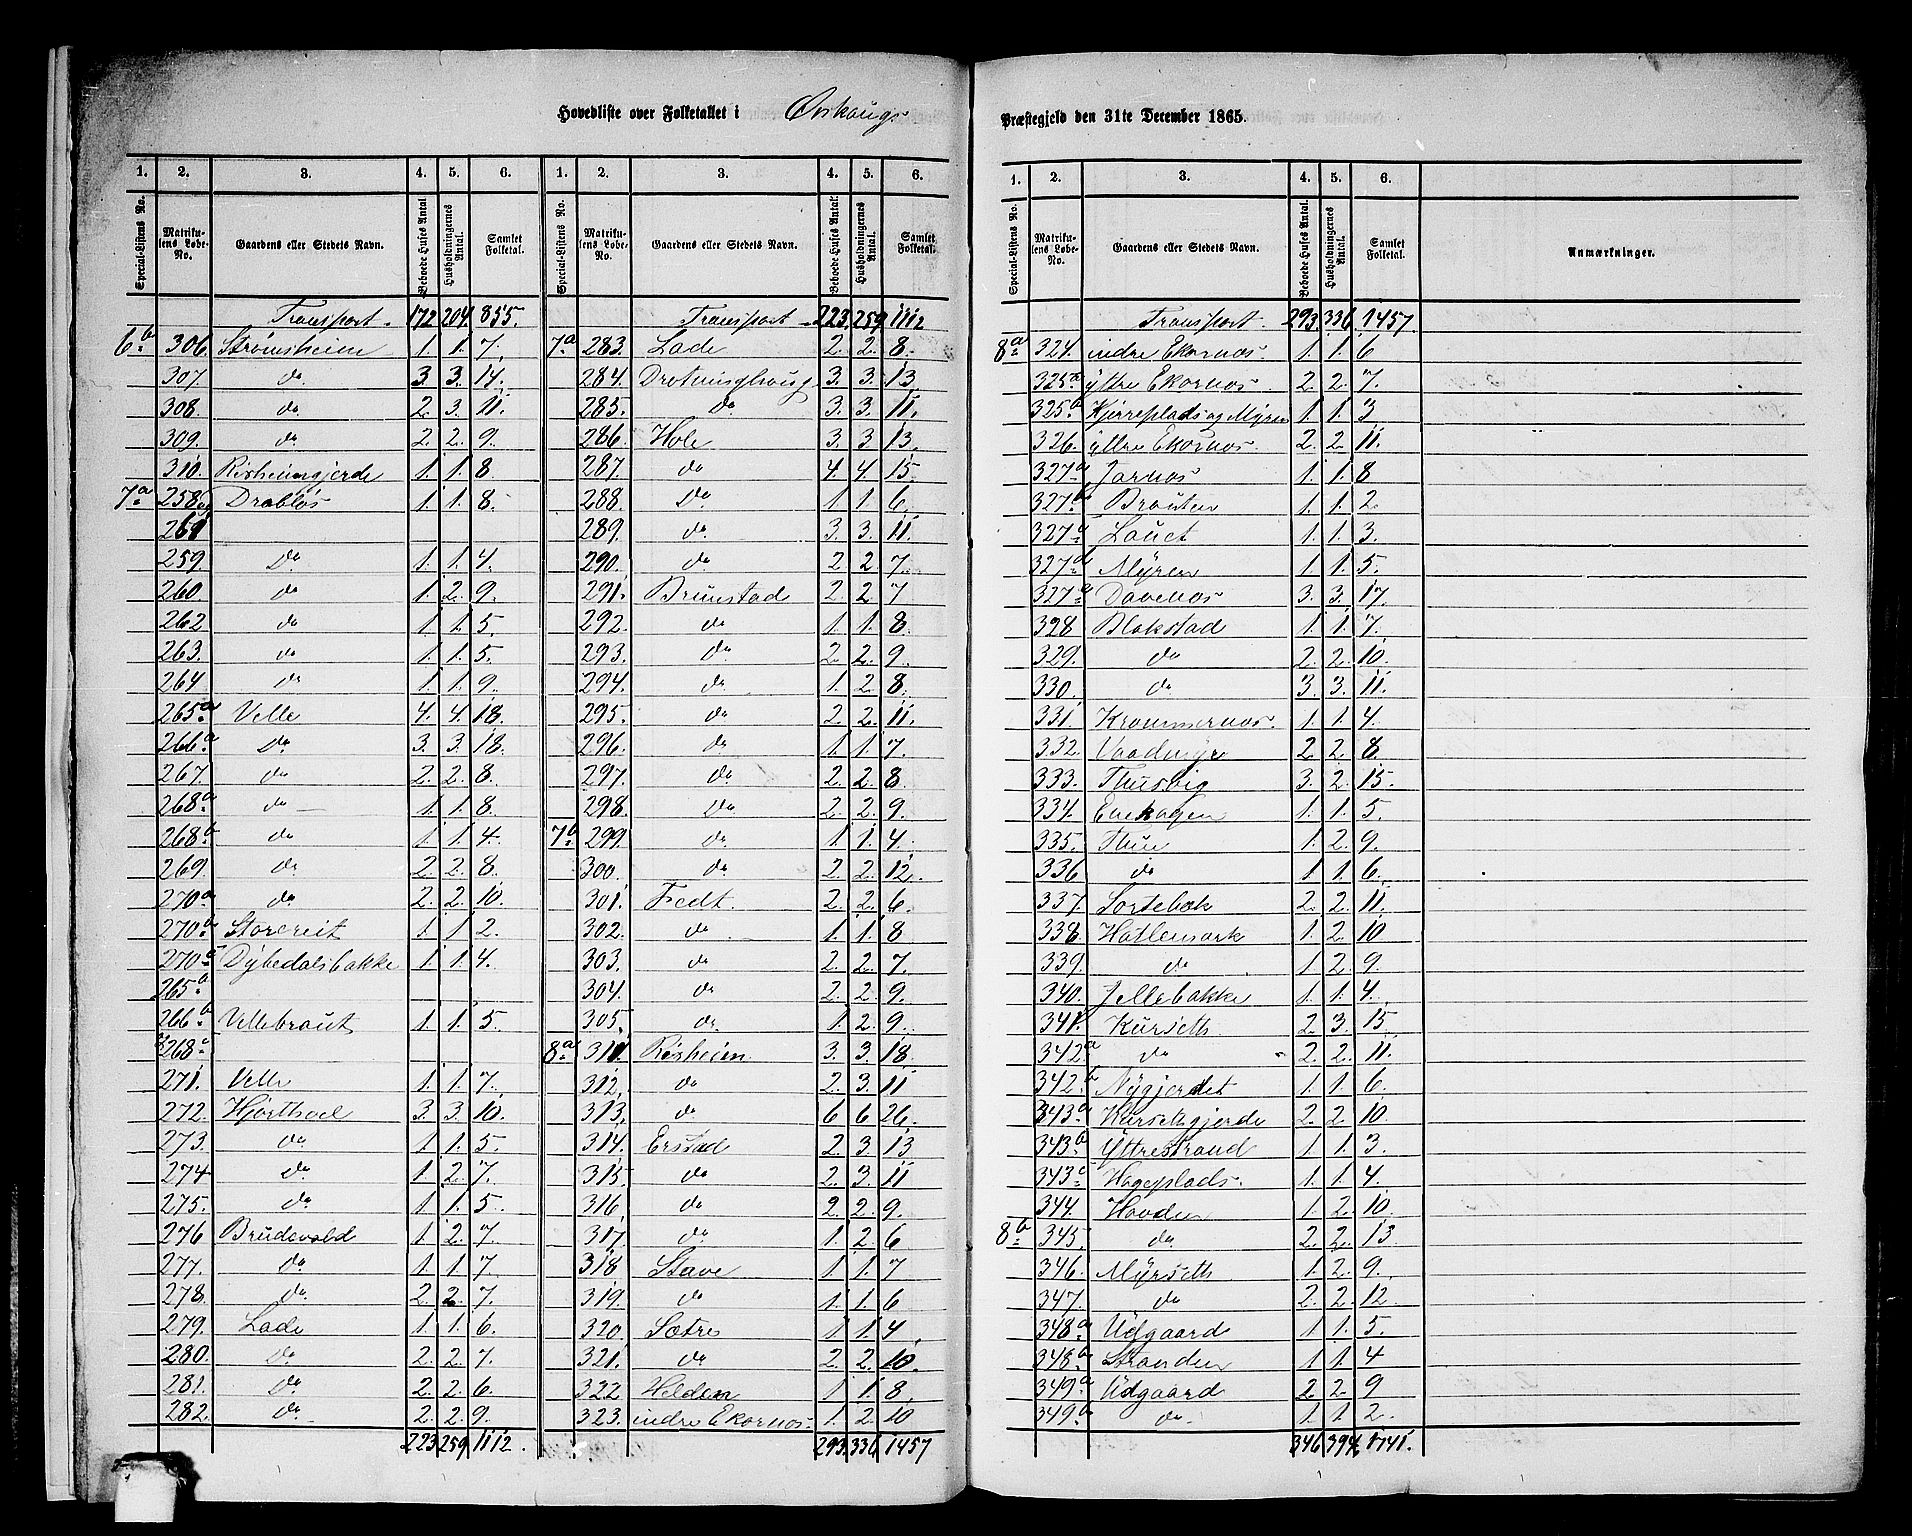 Hovedliste over Folketallet i Ørskougs Præstegjeld den 31te December 1865.
1. 2. 3. 4. 5. 6. 1. 2. 3. 4. 5. 6.
Special-Listens No. Matrikulens Løbe-No. Gaardens eller Stedets Navn. Beboede Huses Antal. Husholdningernes Antal. Samlet Folketal. Special-Listens No. Matrikulens Løbe-No. Gaardens eller Stedets Navn. Beboede Huses Antal. Husholdningernes Antal. Samlet Folketal.
Transport. 172 204 855. Transport 223 259 1112
6b 306. Strømsheim 1. 1. 7. 7a 283. Lade 2. 2. 8.
307. do 3. 3. 14. 284. Drotninghoug 3. 3. 13
308. do 2. 3. 11. 285. do 3. 3. 11.
309. do 2. 2. 9. 286. Hole 3. 3. 13.
310. Risheimgjerde 1. 1. 8. 287. do 4. 4. 15
7a 258 og Drabløs 1. 1. 8. 288. Do 1 1 6.
261 289. do. 3. 3. 11.
259. Do 1. 1. 4. 290. do 2 2 7.
260. do 1. 2. 9. 291. Brunstad 2. 2. 7
262 do 1 1. 5. 292. do 1. 1. 8.
263. do 1. 1. 5. 293. do 2. 2. 9.
264 do 1. 1. 9. 294. do 1. 2. 8.
265a Velle 4. 4. 18. 295. do 2. 2. 11.
266a Do. 3. 3. 18. 296. do 1. 1. 7.
267. do 2. 2. 8. 297. do 2. 2. 8
268a do 1. 1. 8. 298. Do 2. 2. 9.
268b do 1. 1. 4. 7b 299. do 1 1. 4.
269. do 2. 2. 8. 300. do 2. 2. 12.
270a do 2. 2. 10. 301. Fedt. 2. 2. 6.
270b Storereit 1. 1 2. 302. do 1. 1. 8
270c Dybedalsbakke 1 1. 4. 303. do 2. 2. 7.
265b 304. do 2. 2. 9.
266b Vellebraut 1. 1. 5. 305. do 1. 2. 9.
268c 8a 311. Risheim 3. 3. 18.
271. Velle 1. 1. 7. 312. do 2. 3. 11
272. Hjorthoel 3. 3. 10. 313. do 6 6 26.
273. do 1 1. 5. 314. Erstad 2. 3. 13
274 do 1 2. 7. 315. do 2. 3. 11
275. do 1 1. 5 316 do 2. 2. 9.
276 Brudevold 1. 2. 7. 317. do 1. 2. 6
277. do 1 1. 7. 318 Stave 1 1. 7
278. do. 2. 2. 7. 319. do 1. 1. 6
279. Lade 1. 1. 6. 320 Sætre 1 1. 4
280. Do. 2. 2. 7. 321. do 2. 2. 10.
281. Do 2. 2. 6. 322 Helden 1 1. 8.
282. do. 2. 2. 9. 323. indre Ekornæs 1. 2. 10
223 259. 1112. 293. 336 1457
1. 2. 3. 4. 5. 6.
Special-Listens No. Matrikulens Løbe-No. Gaardens eller Stedets Navn. Beboede Huses Antal. Husholdningernes Antal. Samlet Folketal. Anmærkninger.
Transport. 293. 336. 1457
8a 324. indre Ekornæs. 1. 1. 6
325a yttre Ekornæs 2. 2. 7.
325b Kjirreplads og Myren 1 1. 3
326. yttre Ekornæs 2. 2. 11.
327a Jarnæs 1. 1. 8
327b Brauten 1. 1. 2
327c Lauet 1. 1. 3.
327d Myren 1 1. 5.
327e Davenæs 3. 3. 17.
328 Blakstad 1. 1. 7.
329. do 2. 2. 10.
330. do 3. 3. 11.
331. Krammernæs. 1. 1. 4.
332. Vaadmyr 2. 2. 8.
333. Thusvig 3. 2. 15.
334. Enehagen 1. 1. 5.
335. Thue 1. 2. 9.
336 do 1 1. 6.
337. Sortebæk 2. 2. 11.
338. Hatlemark 1. 2. 10
339. do 1 2. 9.
340. Jellebakke 1. 1. 4.
341. Kurseth 2. 3. 15.
342a do 2. 2. 11.
342b Nygjerdet 1 1. 6.
343a Kursethgjerde 2. 2. 10
343b Yttrestrand 1. 1. 3.
343c Hageplads. 1 1. 4.
344. Hovden 1. 2. 10
8b 345. do 2. 2. 13.
346. Myrseth 1. 2. 9.
347. do 2. 2. 12.
348a Udgaard 1 1. 5.
348b Stranden 1 1. 4
349a Udgaard 2. 2. 9
349b do. 1 1 2.
346 394 1741.